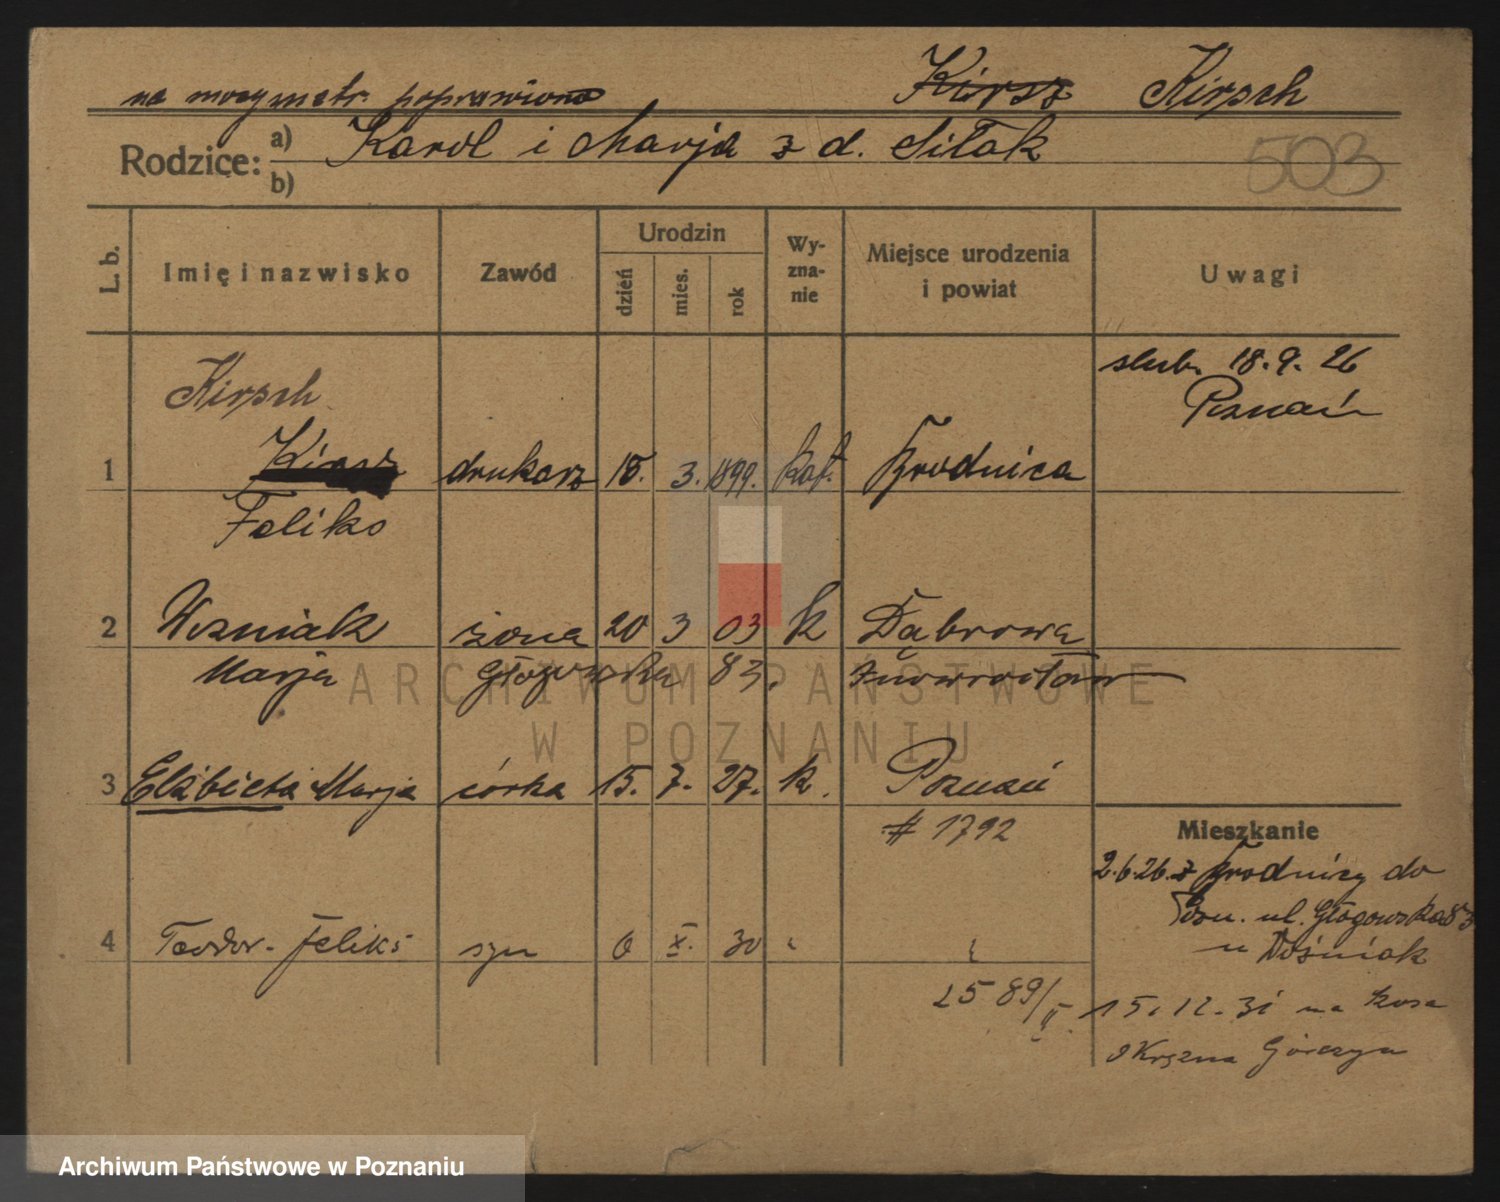 na mocy metr. poprawiono Kirsz Kirsch
Rodzice: a) Karol i Marja z d. Sitak
b)
503
L. b. Imię i nazwisko Zawód Urodzin dzień mies. rok Wy-zna-nie Miejsce urodzenia i powiat Uwagi
ślub. 18.9.26
Poznań
Kirsch
1 Kirsz drukarz 15. 3. 1899. kat. Grodnica
Feliks
2 Wozniak żona 20 3 03 k Dąbrowa
Marja Głogowska 83. Inowrocław
ARCHIWUM PAŃSTWOWE
W POZNANIU
3 Elżbieta Marja córka 15. 7. 27. k. Poznań
# 1792
Mieszkanie
2.6.26. z Grodnicy do
Pozn. ul. Głogowska 83
u Wośniak
4 Teodor-Feliks syn 6 X. 30
2589/II
15.12.31 na
Górczyn
Archiwum Państwowe w Poznaniu